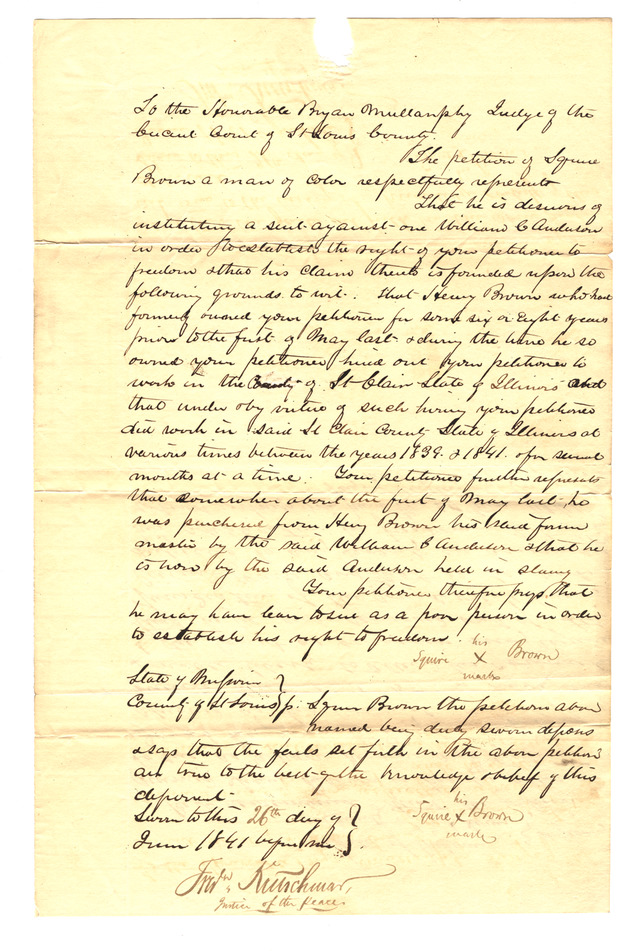 To the Honorable Bryan Mullanphy Judge of the
Circuit Court of St Louis County.
The petition of Squire
Brown a man of color respectfully represents
That he is desirous of
instituting a suit against one William C Anderson
in order to establish the right of your petitioner to
freedom & that his claim thereto is founded upon the
following grounds to wit. That Henry Brown who had
formerly owned your petitioner for some six or Eight years
prior to the first of May last & during the time he so
owned your petitioner hired out your petitioner to
work in the County of St Clair State of Illinois and
that under & by virtue of such hiring your petitioner
did work in said St Clair County State of Illinois at
various times between the years 1839 & 1841. & for several
months at a time. Your petitioner further represents
that somewhere about the first of May last, he
was purchased from Henry Brown his said former
master by the said William C Anderson & that he
is now by the said Anderson held in slavery
Your petitioner therefore prays that
he may have leave to sue as a poor person in order
to establish his right to freedom.
his
Squire X Brown
mark
State of Missouri }
County of St Louis } ss. Squire Brown the petitioner above
named being duly sworn deposes
& says that the facts set forth in the above petition
are true to the best of the knowledge & belief of this
deponent.
Sworn to this 26th day of }
June 1841 before me }.
his
Squire X Brown
mark
Fredk Kretschmar,
Justice of the Peace